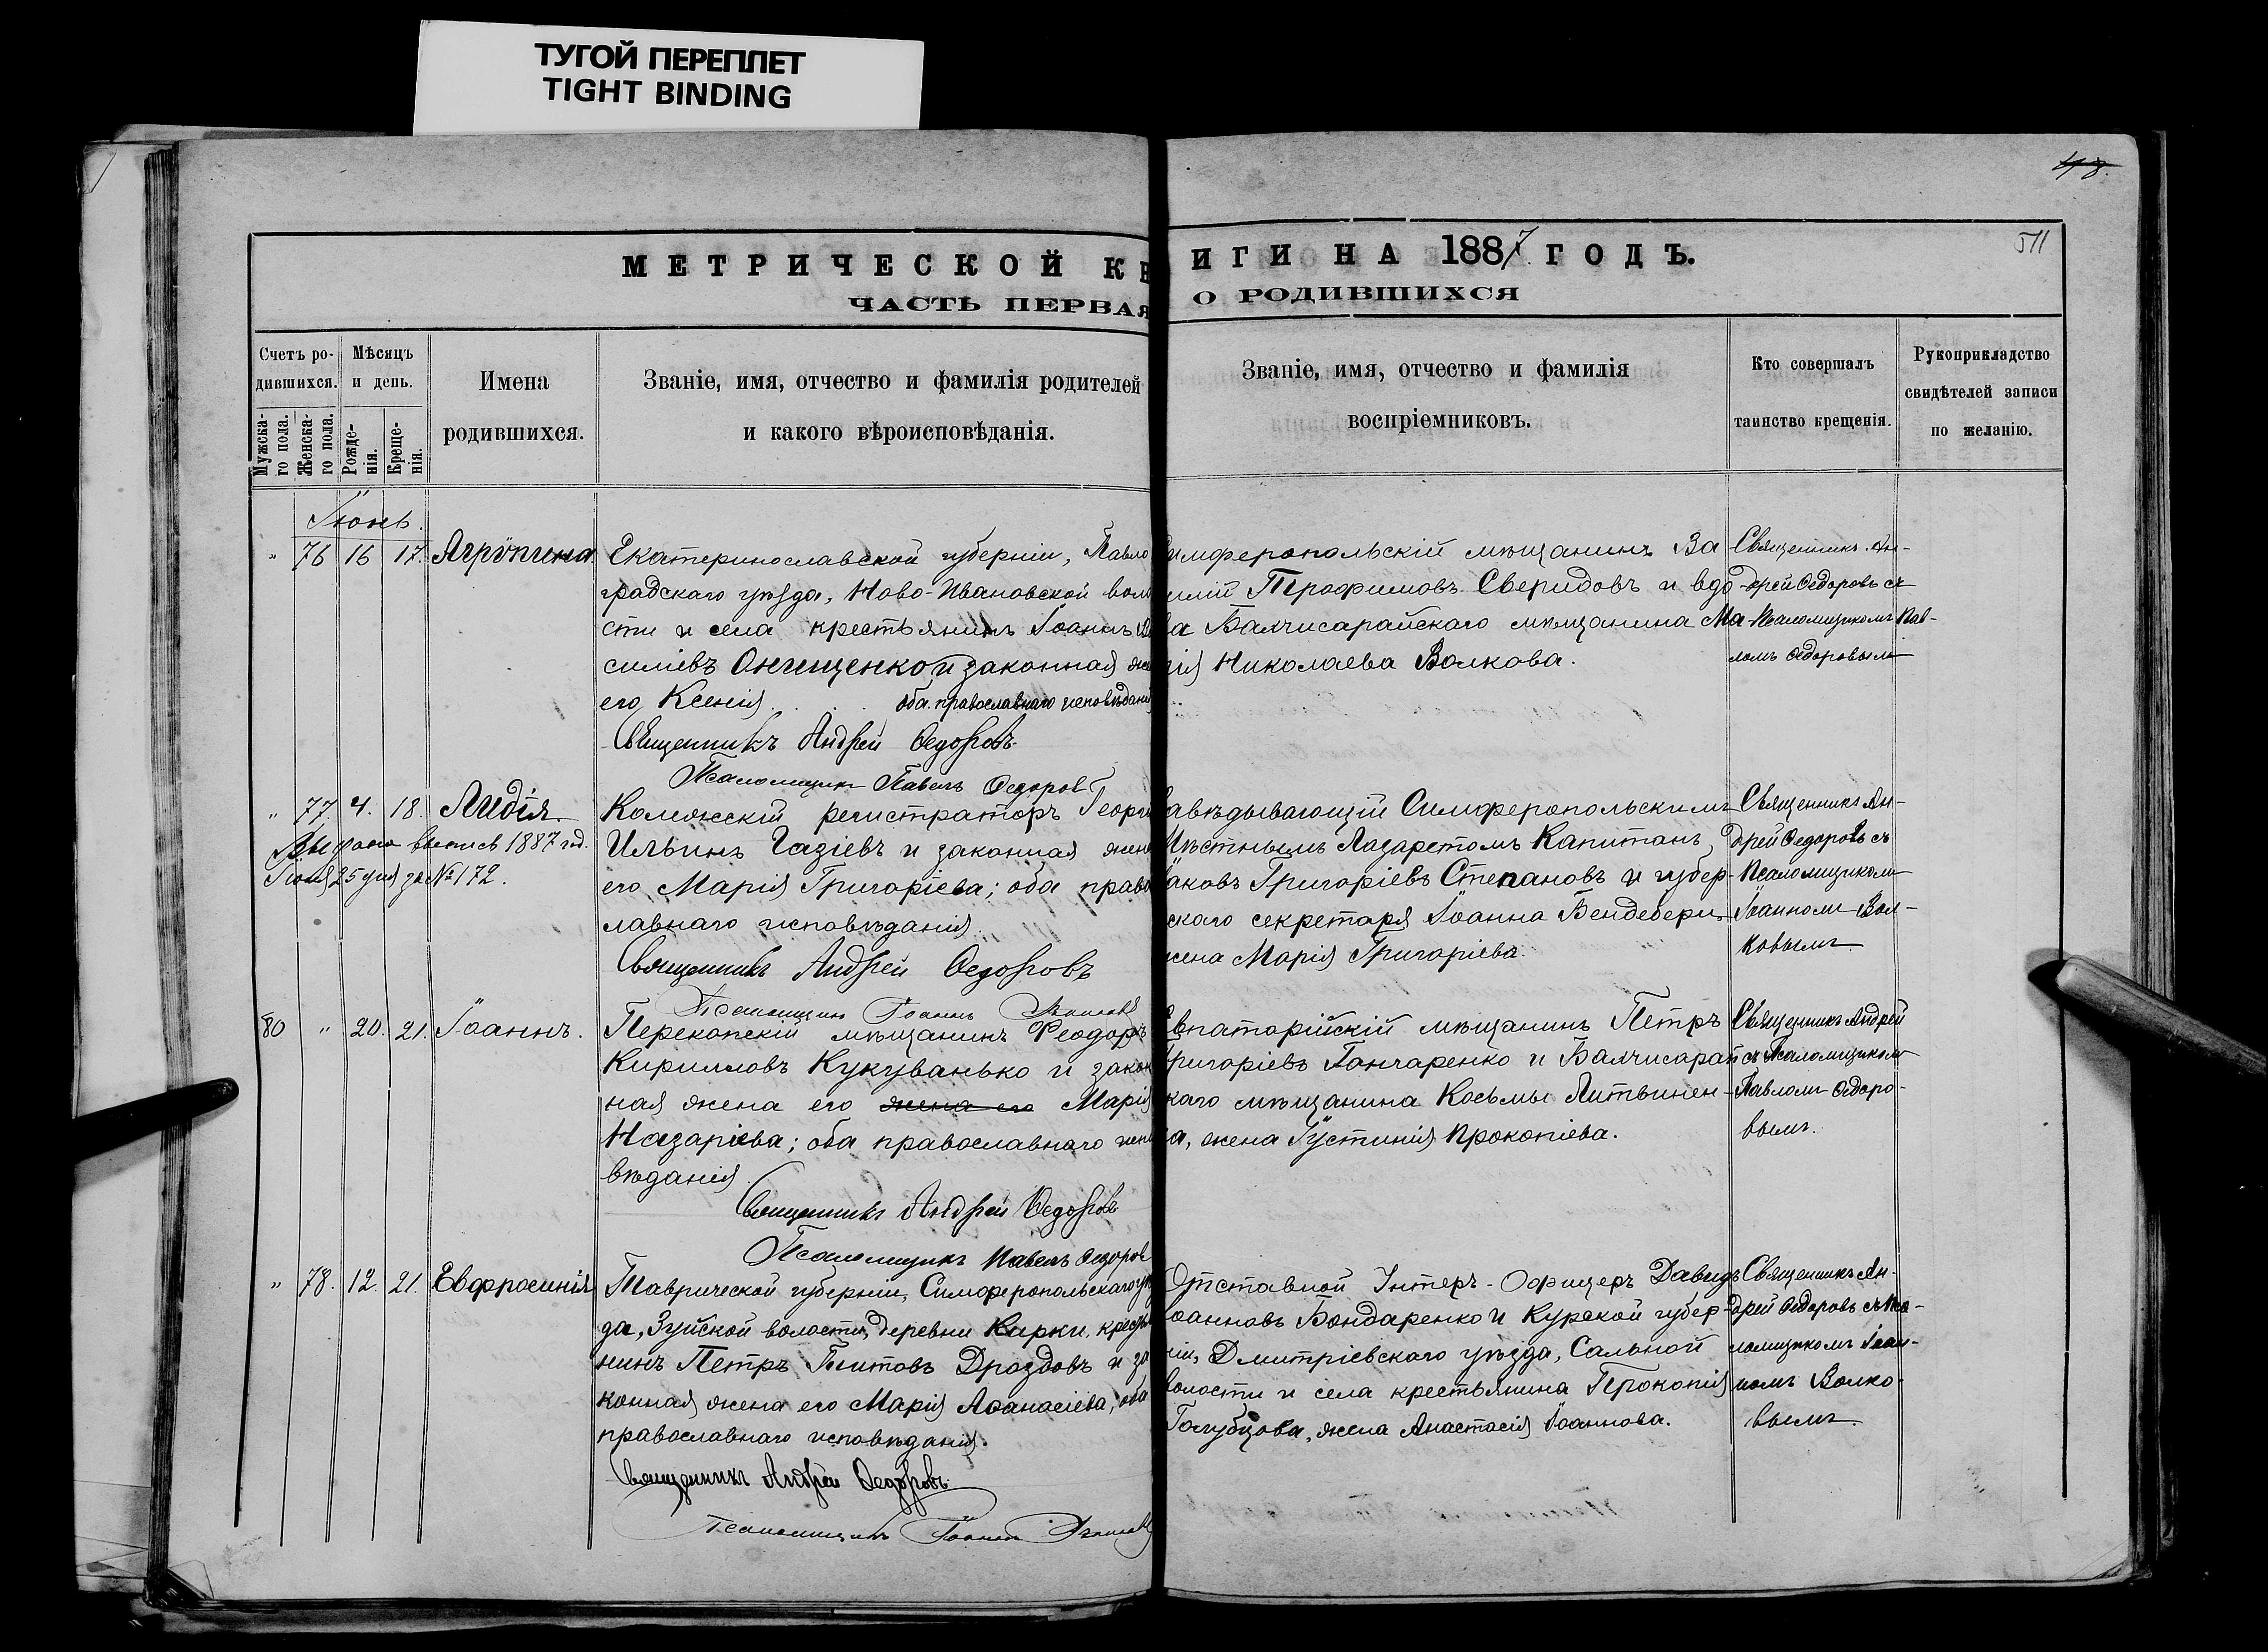 ТУГОЙ ПЕРЕПЛЕТ
TIGHT BINDING
48.
511
МЕТРИЧЕСКОЙ КН
ИГИ НА 1887 ГОДЪ.
ЧАСТЬ ПЕРВАЯ
О РОДИВШИХСЯ
Счетъ ро-
дившихся.
Мужска-
го пола.
Женска-
го пола.
Мѣсяцъ
и день.
Рожде-
нія.
Креще-
нія.
Имена
родившихся.
Званіе, имя, отчество и фамилія родителей
и какого вѣроисповѣданія.
Званіе, имя, отчество и фамилія
воспріемниковъ.
Кто совершалъ
таинство крещенія.
Рукоприкладство
свидѣтелей записи
по желанію.
Іюнь.
" 76 16 17. Агрипина
Екатеринославской губерніи, Павло
градскаго уѣзда, Ново-Ивановской воло
сти и села крестьянинъ Іоаннъ Ва
силіевъ Онищенко и законная же
его Ксенія оба православнаго исповѣданія
Священникъ Андрей Ѳедоровъ
Псаломщикъ Павелъ Ѳедоров
имферопольскій мѣщанинъ Ва
илій Трофимовъ Сверидовъ и вдо-
ва Бахчисарайскаго мѣщанина Ма-
рія Николаева Волкова.
Священникъ Ан-
дрей Ѳедоровъ съ
Псаломщикомъ Пав-
ломъ Ѳедоровымъ
" 77. 4. 18. Лидія.
Выдана выпись 1887 год.
Іюня 25 дня за № 172.
Колежскій регистраторъ Георгі
Ильинъ Газіевъ и законная жен
его Марія Григоріева; оба право
лавнаго исповѣданія.
Священникъ Андрей Ѳедоровъ
Псаломщикъ Іоаннъ
авѣдывающій Симферопольскимъ
Мѣстнымъ Лазаретомъ Капитанъ
аковъ Григоріевъ Степановъ и губер-
скаго секретаря Іоанна Бендебери
жена Марія Григоріева.
Священникъ Ан-
дрей Ѳедоровъ съ
Псаломщикомъ
Іоанномъ Вол-
ковымъ.
80 " 20. 21. Іоаннъ.
Перекопскій мѣщанинъ Феодоръ
Кирилловъ Кукуванько и закон
ная жена его жена его Марія
Назаріева; оба православнаго испо
вѣданія.
Священникъ Андрей Ѳедоровъ
Псаломщикъ Павелъ Ѳедоров
Евпаторійскій мѣщанинъ Петръ
ригоріевъ Ганчаренко и Бахчисарай
скаго мѣщанина Косьмы Литвинен-
ка, жена Іустинія Прокопіева.
Священникъ Андрей
съ Псаломщикомъ
Павломъ Ѳедоро-
вымъ.
" 78. 12. 21. Евфросинія
Таврической губерніи, Симферопольскаго уѣ
да, Зуйской волости, деревни Кирки, кресть
нинъ Петръ Титовъ Дроздовъ и за
конная жена его Марія Аѳанасіева, оба
православнаго исповѣданія.
Священникъ Андрей Ѳедоровъ.
Псаломщикъ Іоаннъ
Отставной Унтеръ-Офицеръ Давидъ
Іоанновъ Бондаренко и Курской губер-
ніи, Дмитріевскаго уѣзда, Сальной
волости и села крестьянина Прокопія
Голубцова, жена Анастасія Іоаннова.
Священникъ Ан-
дрей Ѳедоровъ съ Пса-
ломщикомъ Іоан-
номъ Волко-
вымъ.